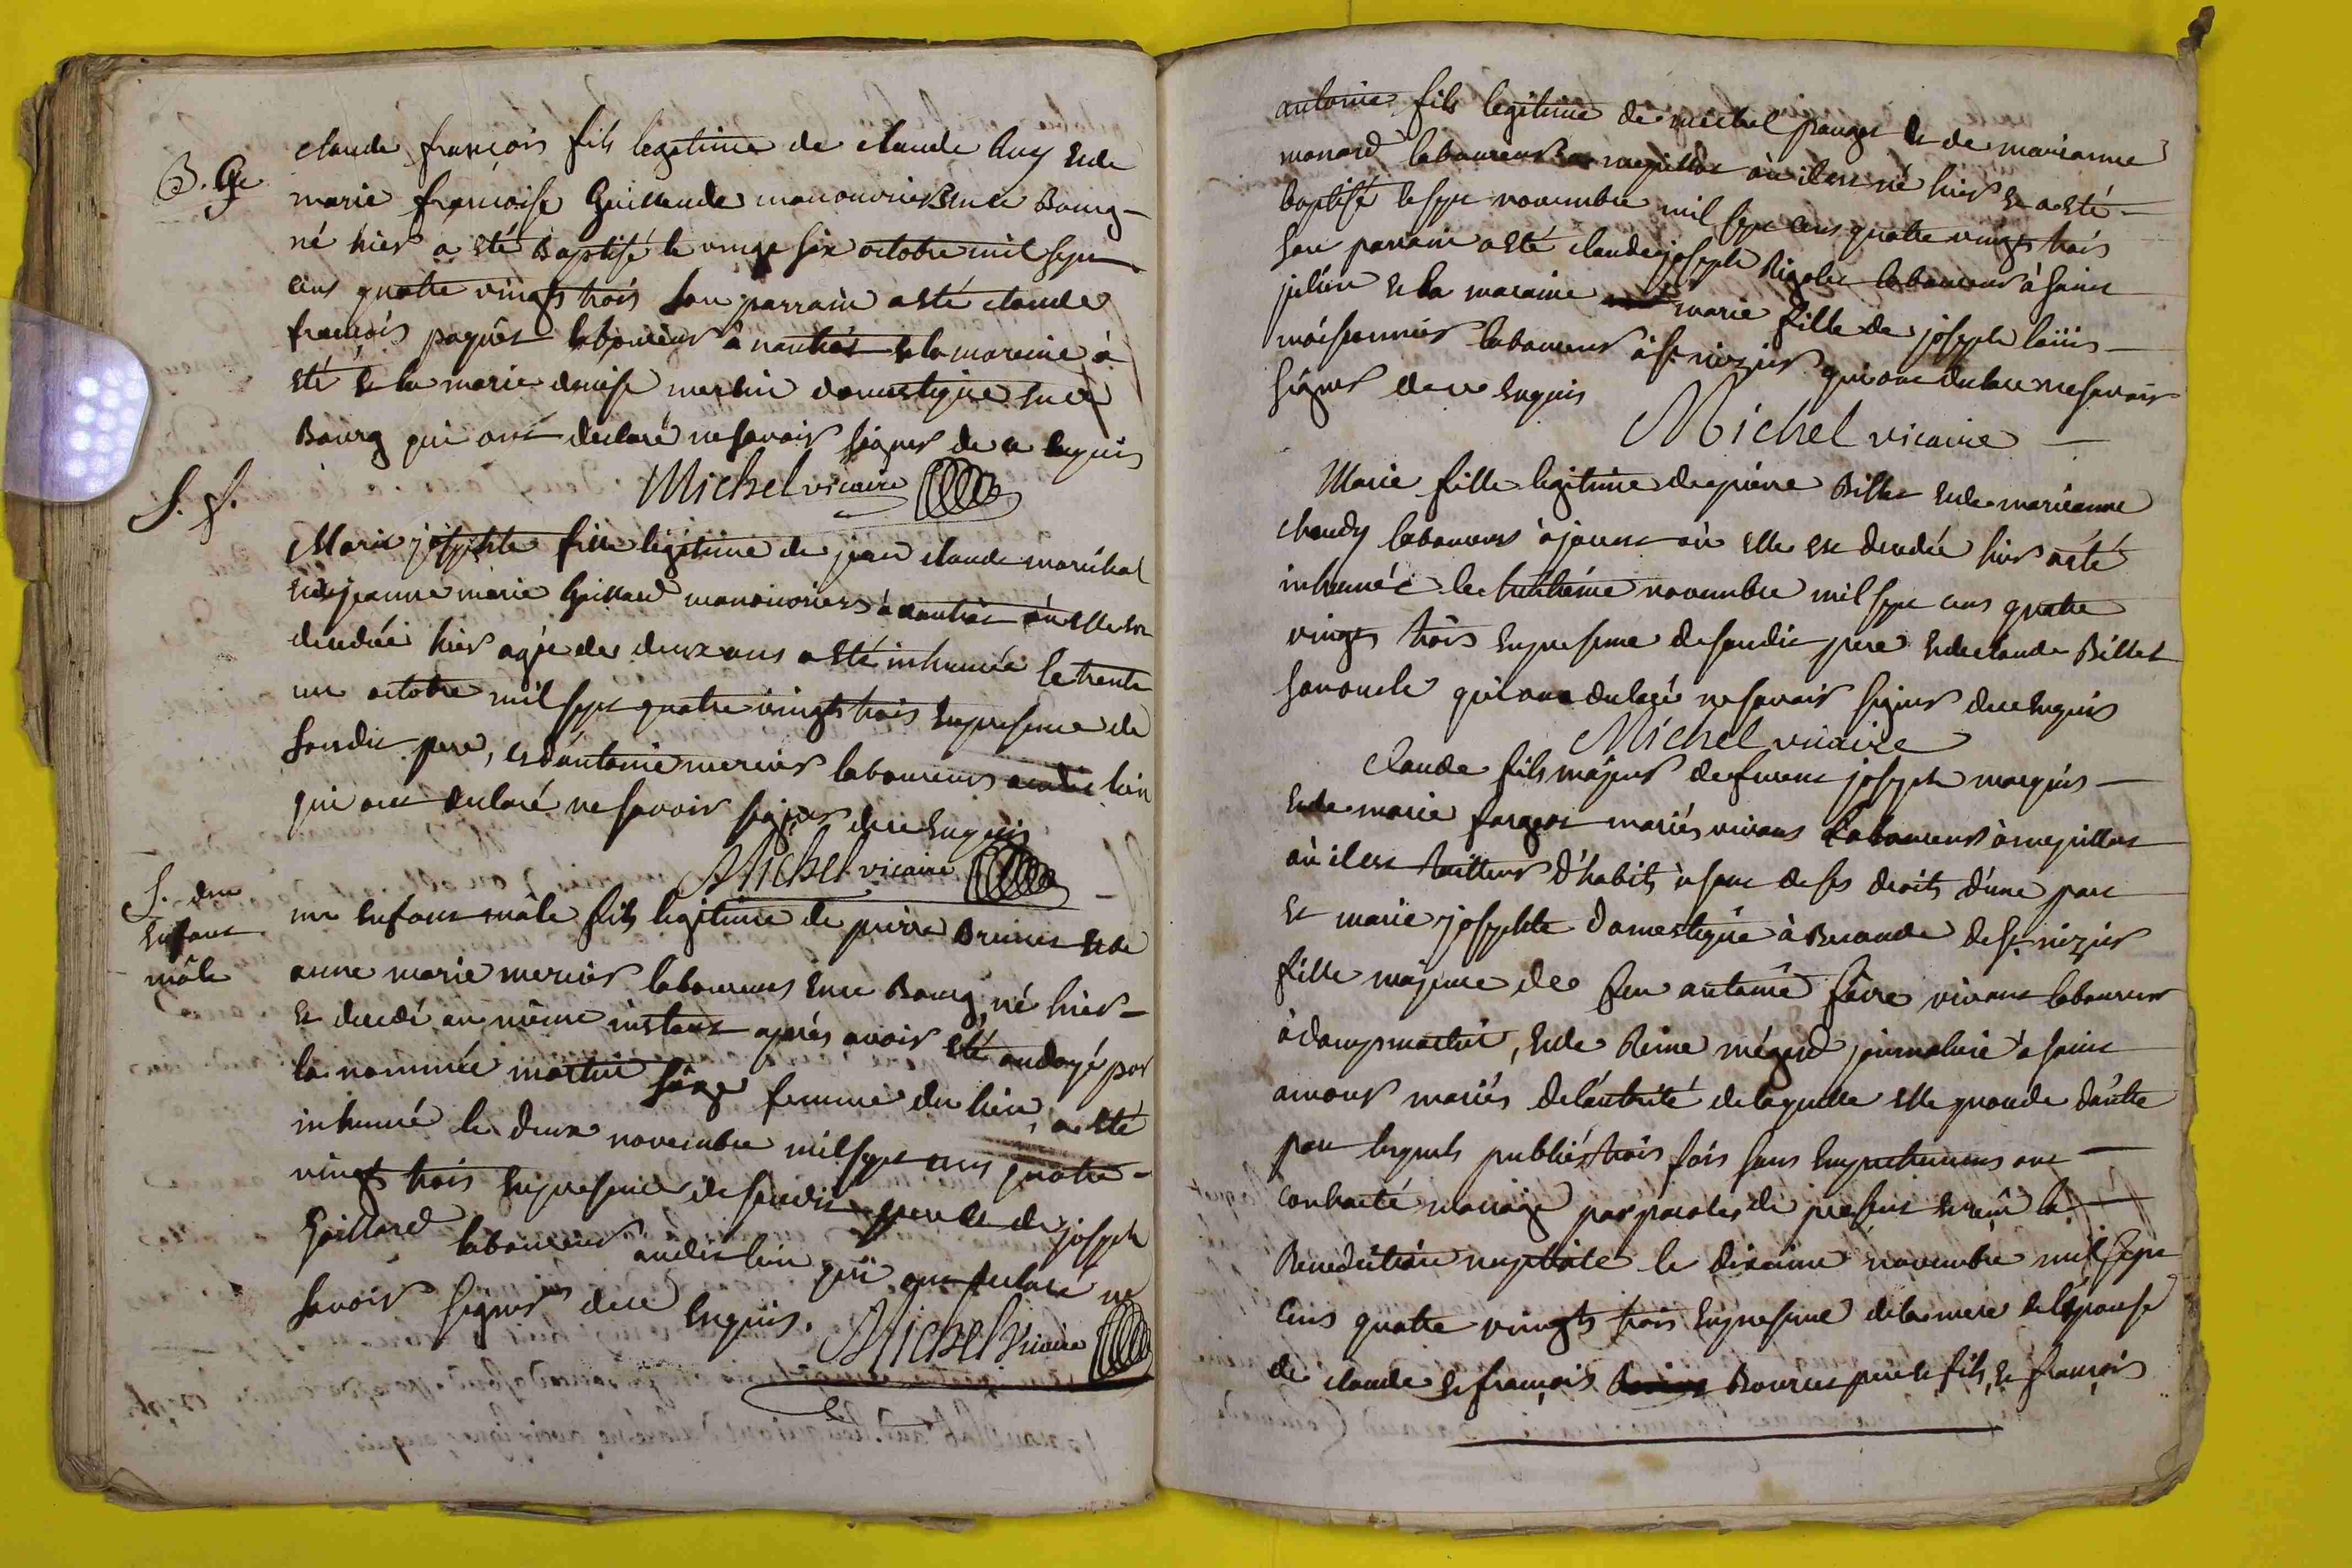 B. G.
claude françois fils legitime de claude Auy et de
marie françoise Guillaude manouvriers en ce Bourg
né hier a eté Baptisé le vingt six octobre mil sept
cens quatre vingts trois son parrain a eté claude
françois paquet laboureur à nantiat et la maraine à
eté et la marie denise merlin domestique en ce
Bourg qui ont declaré ne savoir signer de ce enquis
Michel vicaire
S. f.
Marie josephte fille legitime de jean claude maréchal
et de jeanne marie Gaillard manouvriers à nantiat où elle est
decedée hier agée de deux ans a eté inhumée le trente
un octobre mil sept quatre vingts trois en presence de
son dit pere, et d'antoine mercier laboureurs audit lieu
qui ont declaré ne savoir signer de ce enquis
Michel vicaire
S. d'un
enfant
mâle
un enfant mâle fils legitime de pierre Brunet et de
anne marie mercier laboureurs en ce Bourg, né hier
et decedé au même instant après avoir eté ondoyé par
la nommée martin sage femme du lieu, a eté
inhumé le deux novembre mil sept cens quatre
vingts trois en presence de son dit pere et de joseph
Gaillard laboureur audit lieu qui ont declaré ne
savoir signer de ce enquis.
Michel vicaire
antoine fils legitime de michel pauget et de marianne
monard laboureurs à nepillat où il est né hier et a eté
baptisé le sept novembre mil sept cens quatre vingts trois
son parrain a eté claude joseph Rigolet laboureur à saint
julien et la maraine marie fille de joseph loüis
moissonnier laboureur à St nizier qui ont declaré ne savoir
signer de ce enquis
Michel vicaire
Marie fille legitime de pierre Billet et de marianne
chaudy laboureurs à joux où elle est decedée hier a eté
inhumée le huitième novembre mil sept cens quatre
vingts trois en presence de son dit pere et de claude Billet
son oncle qui ont declaré ne savoir signer de ce enquis
Michel vicaire
Claude fils majeur de furent joseph marquis
et de marie fargeot mariés vivans laboureurs à nepillat
où il est tailleur d'habits usant de ses droits d'une part
et marie josephte domestique à Branda de St nizier
fille majeure de feu antoine faivre vivant laboureur
à dampmartin, et de Reine mégard journaliere à saint
amour mariés de l'autorité de laquelle elle procede d'autre
part lesquels publiés trois fois sans empechemens ont
contracté mariage par paroles de present et reçu la
Benediction nuptiale le dixieme novembre mil sept
cens quatre vingts trois en presence de la mere de l'épouse
de claude et françois Bourcet pere et fils, et françois